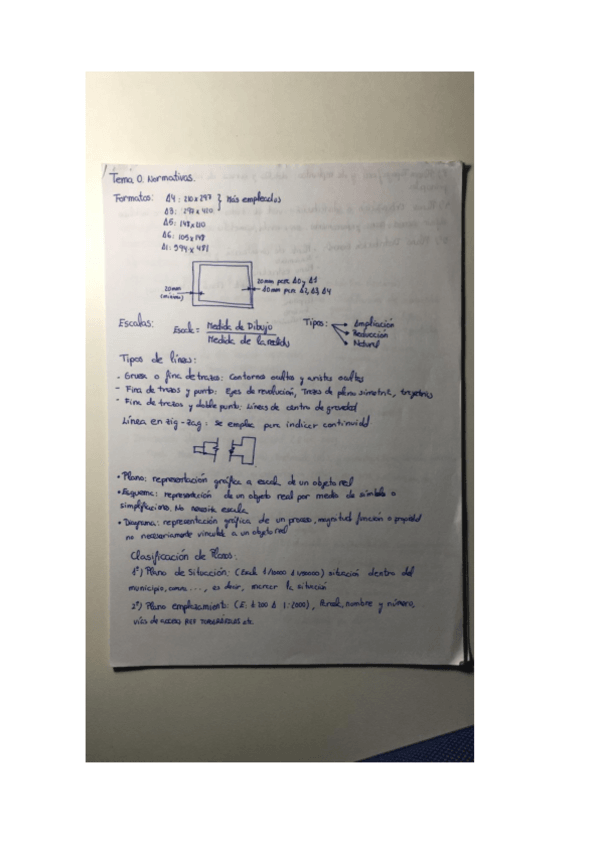 Tema 0. Normativas.
Formatos: A4: 210 x 297 } Más empleados
A3: 298 x 420
A5: 148 x 210
A6: 105 x 148
A1: 594 x 481
20mm (mínimo)
20mm para A0 y A1
10mm para A2, A3, A4
Escalas: Escala = Medida de Dibujo / Medida de la realidad
Tipos: Ampliación
Reducción
Natural
Tipos de líneas:
- Gruesa o fina de trazos: Contornos ocultos y aristas ocultas
- Fina de trazos y punto: Ejes de revolución, Trazas de plano simetría, trayectorias
- Fina de trazos y doble punto: Líneas de centro de gravedad
Línea en zig-zag: se emplea para indicar continuidad
• Plano: representación gráfica a escala de un objeto real
• Esquema: representación de un objeto real por medio de símbolos o
simplificaciones. No necesita escala
• Diagrama: representación gráfica de un proceso, magnitud, función o propiedad
no necesariamente vinculada a un objeto real
Clasificación de Planos:
1º) Plano de Situación: (Escala 1/10000 a 1/50000) situación dentro del
municipio, ..., es decir, marcar la situación
2º) Plano emplazamiento (E. 1:200 a 1:2000), Parcela, nombre y número,
vías de acceso, REF etc.